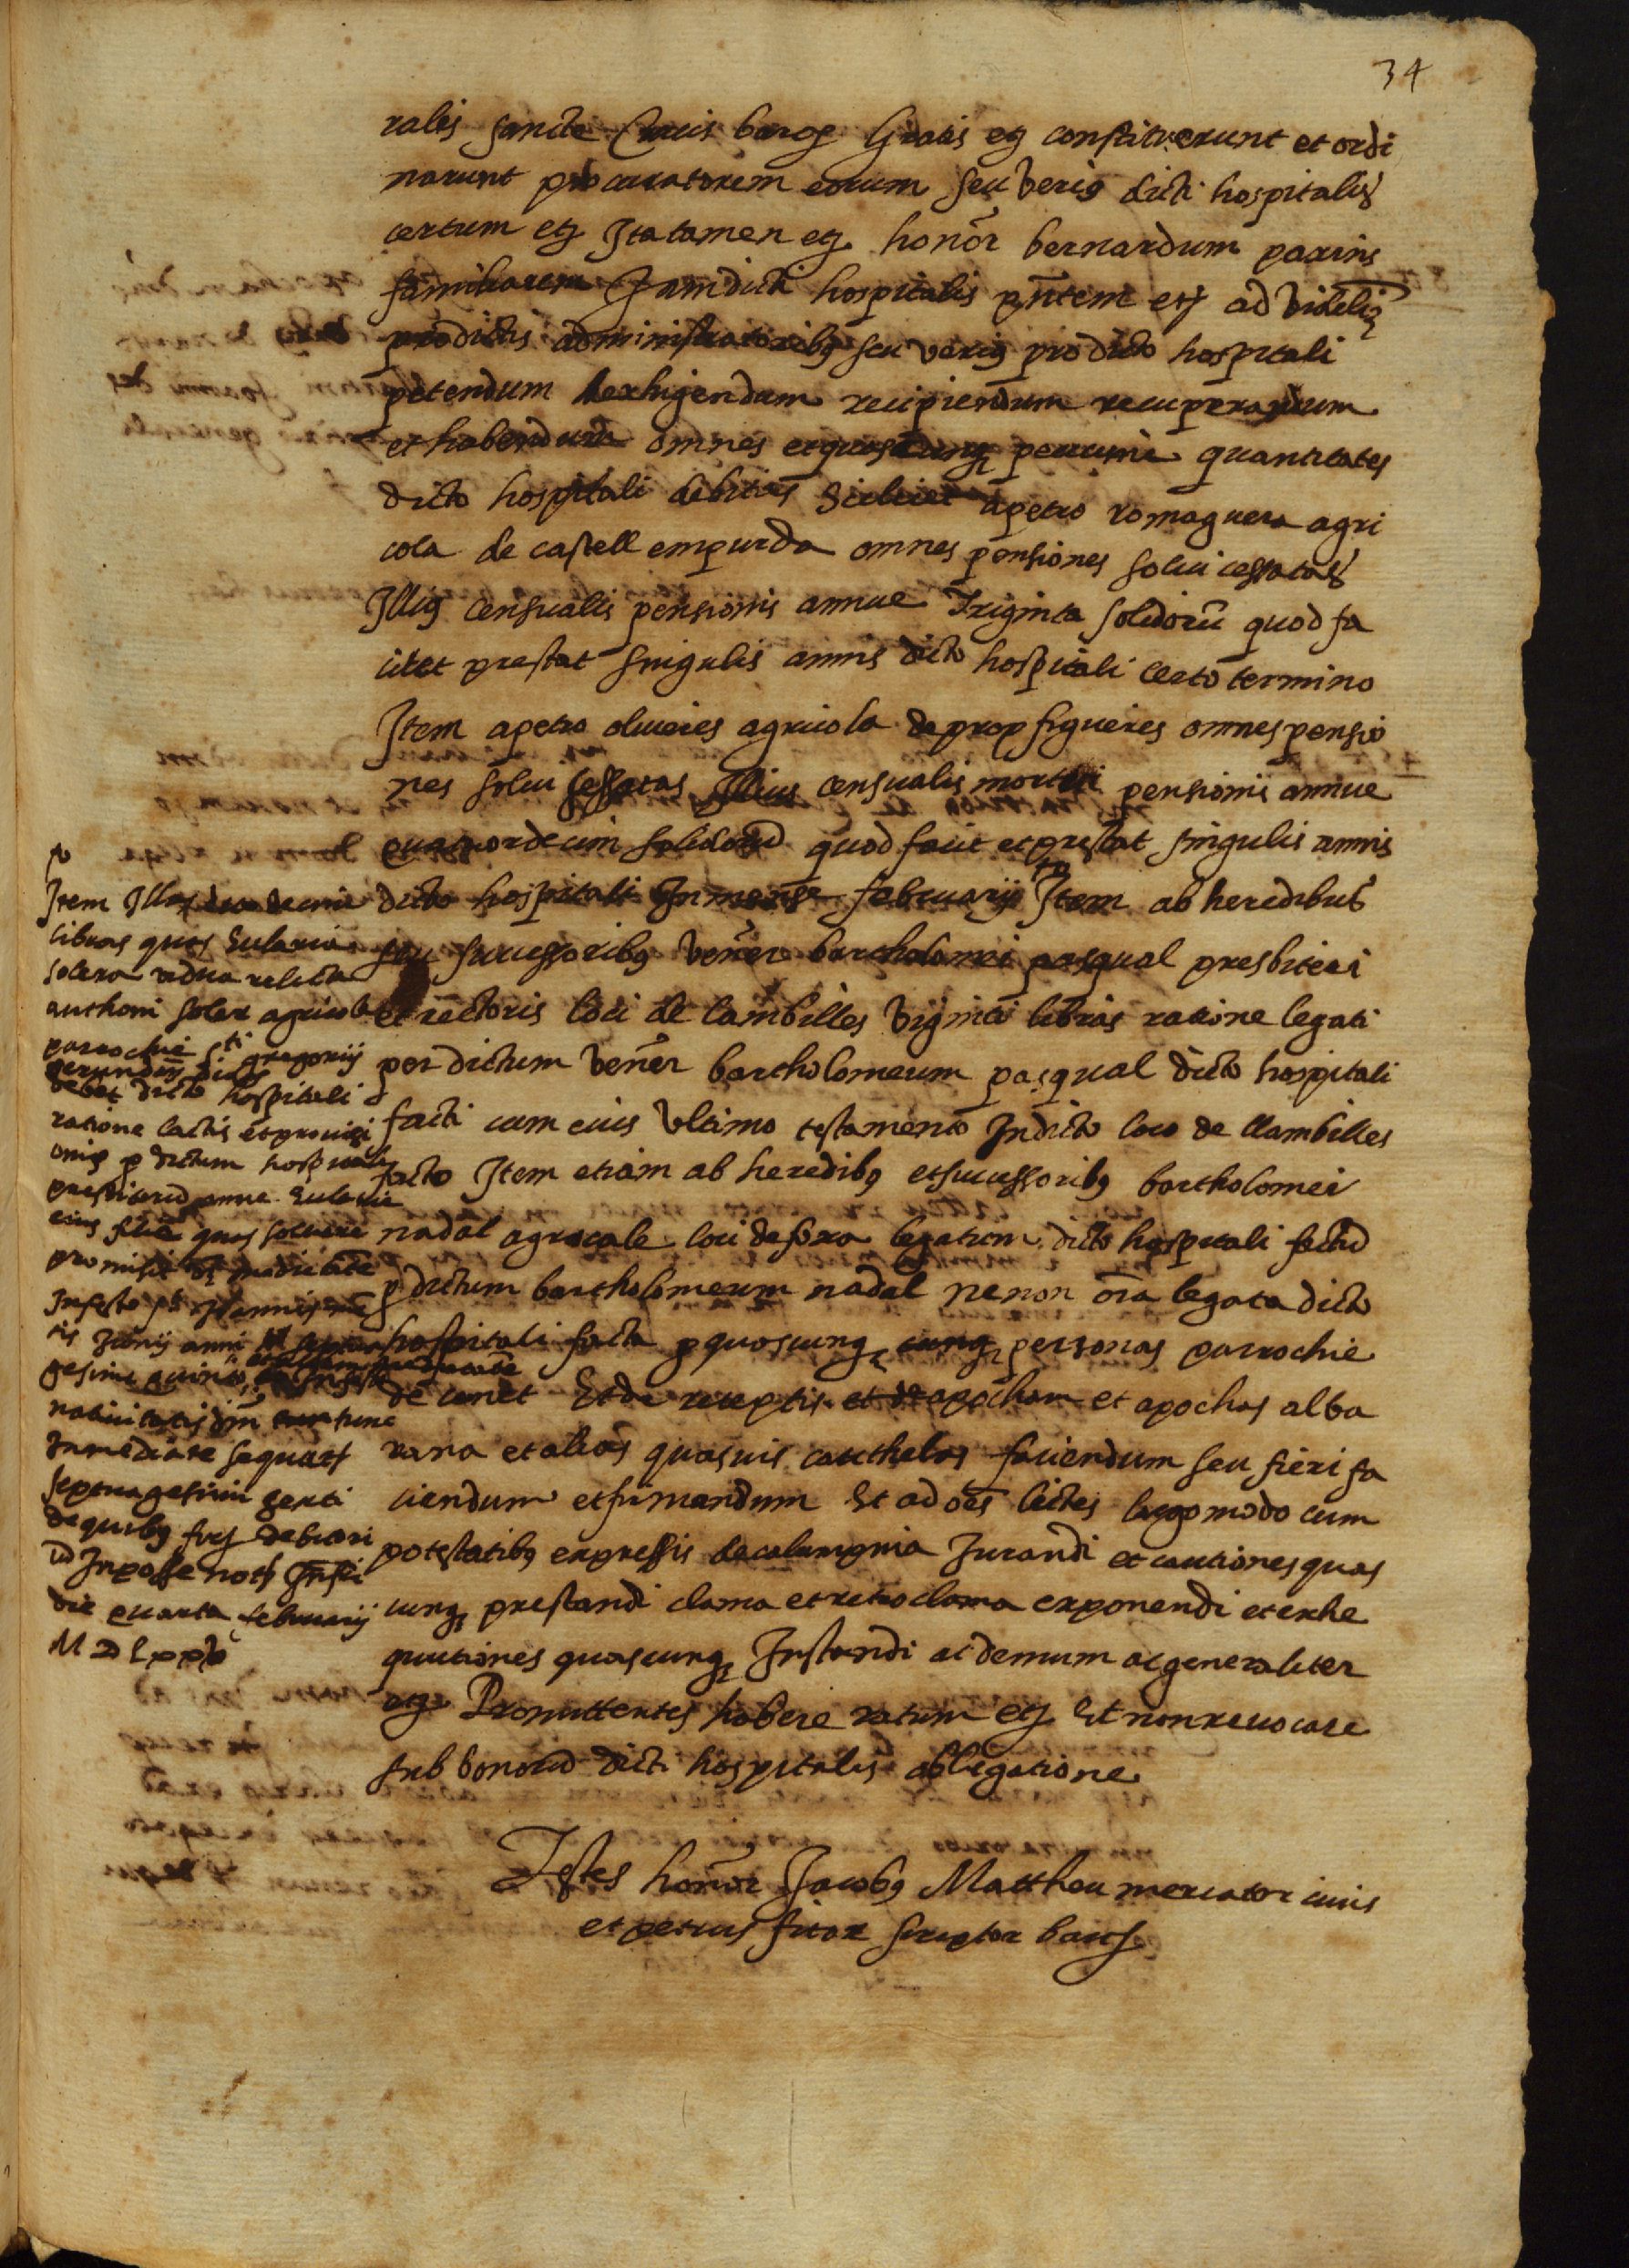 34
ralis sancte Crucis barc̄ Gratis etc̄ constituerunt et ordi
narunt procuratorem eorum seu verius dicti hospitalis
certum etc̄ Itatamen etc̄ honor̄ bernardum parins
familiarem Jamdicti hospitalis pn̄tem etc̄ ad videlicꝫ
pro dictis administratoribꝯ seu veriꝯ pro dicto hospitali
petendum exhigendum recipiendum recuperandum
et habendum omnes et quascunqꝫ peccunie quantitates
dicto hospitali debitas Scilicet apetro romaguera agri
cola de castell empurda omnes pensiones solui cessatas
Illiꝯ censualis pensionis annue Triginta solidorū quod fa
cit et prestat singulis annis dicto hospitali certo termino
Item apetro oliueres agricola de prop figueres omnes pensio
nes solui cessatas Illius censualis mortui pensionis annue
quatuordecim solidorū quod facit et prestat singulis annis
dicto hospitali In mense februarij Item ab heredibus
seu successoribꝯ vener̄ bartholomei pasqual presbiteri
et rectoris loci de lambilles viginti libras ratione legati
per dictum vener̄ bartholomeum pasqual dicto hospitali
facti cum eius vltimo testamento In dicto loco de llambilles
facto Item etiam ab heredibꝯ et successoribꝯ bartholomei
nadal agricole loci de fora legatum dicto hospitali factū
ꝑ dictum bartholomeum nadal nenon oīa legata dicto
hospitali facta ꝑ quoscunqꝫ cunqꝫ personas parrochie
de canet Et de receptis et de apocham et apochas alba
rana et alias quasuis cauthelas faciendum seu fieri fa
ciendum et firmandum Et ad oēs lictes largo modo cum
potestatibꝯ expressis de calumpnia Jurandi et cautiones quas
cunqꝫ prestandi clama et retroclama exponendi et exhe
qutiones quascunqꝫ Instandi ac demum ac generaliter
etc̄ Promittentes habere ratum etc̄ Et non reuocare
sub bonorū dicti hospitalis obligatione
Testes honor̄ Jacobꝯ Mattheu mercator ciuis
et petrus fitor scriptor barc̄
Item Illas duodecim
libras quas Eularia
solera vidua relicta
anthoni soler agricole
parrochie sti gregorij
gerundeñ dioc̄
debet dicto hospitali
ratione lactis et prouisi
onis ꝑ dictum hospitale
prestitarū anne Eularie
eius filie quas soluere
promisit medietate
In festo sti Joannis
Junij anni septua
gesimi quinti
natiuitatis dn̄i tunc
Inmediate sequent̄
septuagesimi sexti
de quibꝯ fuit debitori
ū In posse not̄ Infrī
die quarta februarij
M D Lxxv